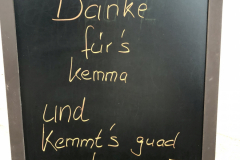 Danke
für's
kemma
und
Kemmt's guad